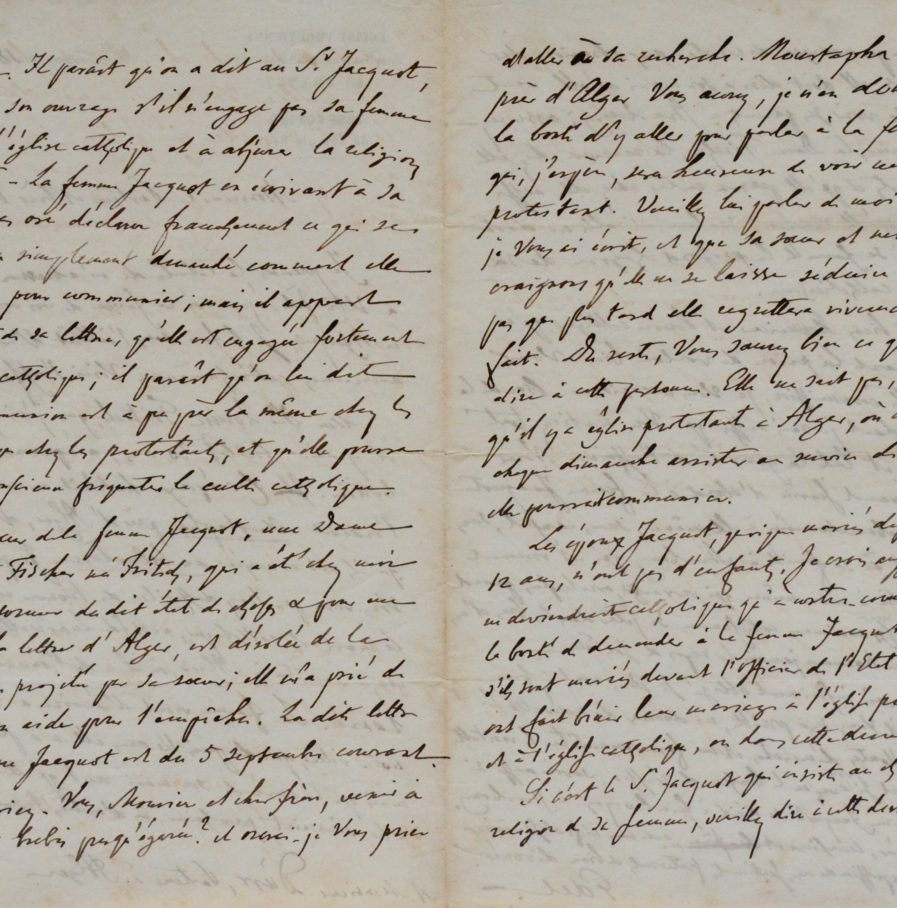 Il paraît qu'on a dit au Sr Jacquot,
son ouvrage s'il n'engage pas sa femme
l'église catholique et à abjurer la religion
- La femme Jacquot en écrivant à sa
osé déclarer franchement ce qui se
simplement demandé comment elle
pour communier; mais il appert
de sa lettre, qu'elle est engagée fortement
catholique; il paraît qu'on lui dit
est à peu près la même chez les
chez les protestants, et qu'elle pourra
fréquenter le culte catholique.
de la femme Jacquot, une Dame
Fischer née Fritsch, qui a été chez moi
du dit état de choses & pour me
lettre d'Alger, est désolée de la
projeté par sa sœur; elle m'a prié de
aide pour l'empêcher. La dite lettre
Jacquot est du 5 septembre courant.
Vous, Monsieur et cher frère, venir à
brebis presqu'égarée? et oserai-je Vous prier
d'aller à sa recherche. Moustapha
près d'Alger Vous aurez, je n'en
la bonté d'y aller pour parler à la
qui, j'espère, sera heureuse de voir
protestant. Veuillez lui parler de moi
je Vous ai écrit, et que sa sœur et
craignons qu'elle ne se laisse séduire
pas que plus tard elle regrettera
fait. Du reste, Vous saurez bien ce
dire à cette personne. Elle ne sait pas,
qu'il y a église protestante à Alger, où
chaque dimanche assister au service
elle pourrait communier.
Les époux Jacquot, quoique mariés
12 ans, n'ont pas d'enfants. Je crois
deviendraient catholiques
la bonté de demander à la femme Jacquot
s'ils sont mariés devant l'officier de l'Etat
ont fait bénir leur mariage à l'église
et à l'église catholique, ou dans cette
Si c'est le S. Jacquot qui insiste au
religion de sa femme, veuillez dire à cette